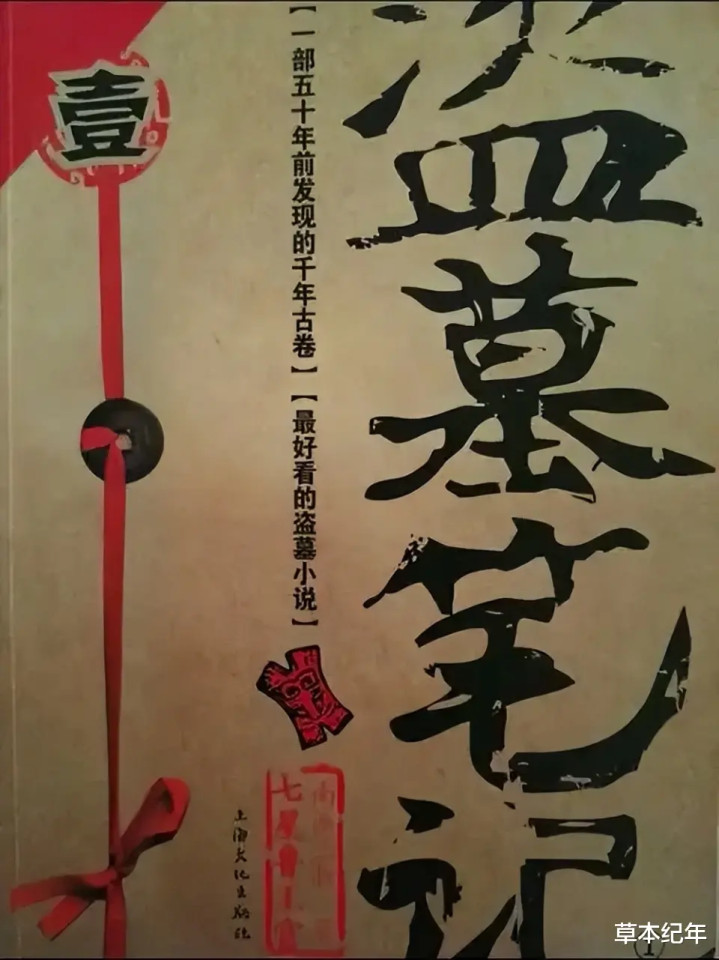 盗墓笔记
【一部五十年前发现的千年古卷】【最好看的盗墓小说】
壹
上海文化出版社
七星鲁王宫
1
草本纪年